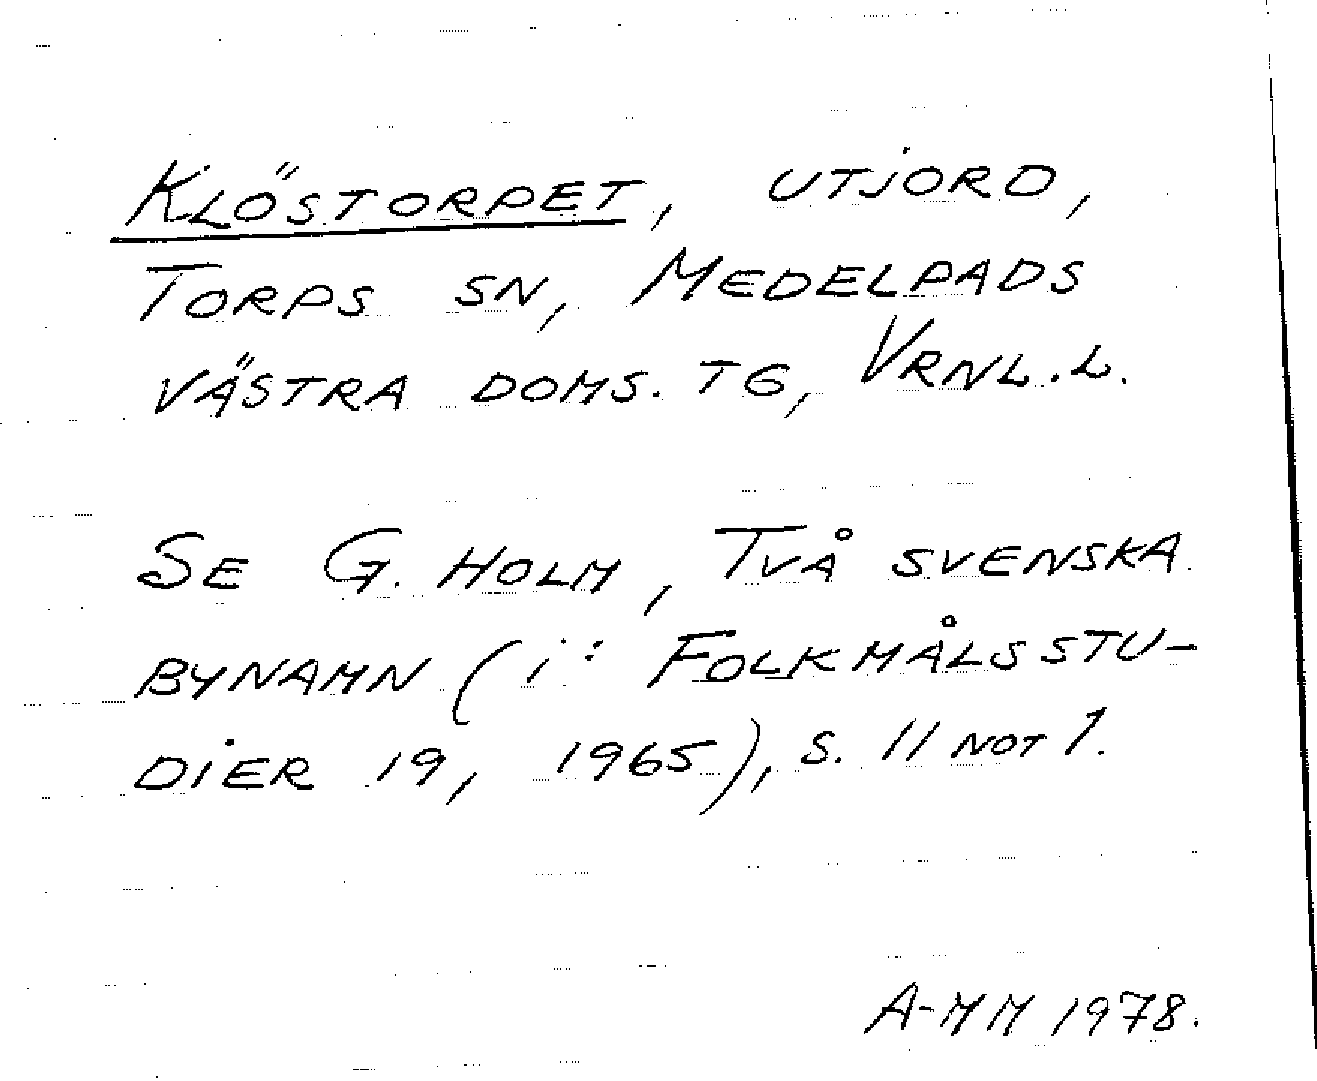 KLÖSTORPET, UTJORD,
TORPS SN, MEDELPADS
VÄSTRA DOMS. TG, VRNL.L.
SE G. HOLM, TVÅ SVENSKA
BYNAMN (i: FOLKMÅLSSTU-
DiER 19, 1965), S. 11 NOT 1.
A-MM 1978.